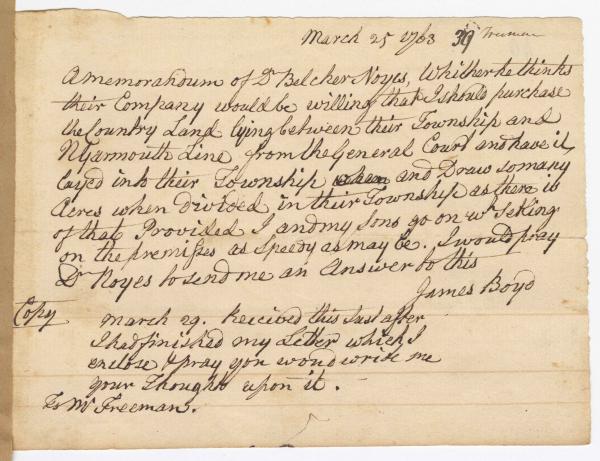 March 25 1763 39 Freeman
A memorandum of Dr Belcher Noyes, Whither he thinks
their Company would be willing that I should purchase
the Country Land lying between their Township and
N Yarmouth Line from the General Court and have it
layed into their Township and Draw so many
Acres when Divided in their Township as there is
of that Provided I and my Sons go on wt Seking
on the premisses as Speedy as may be. I would pray
Dr Noyes to send me an Answer to this
James Boyd
Copy
March 29. Recieved this Just after
I had finished my Letter which I
enclose & pray you would write me
your Thoughts upon it.
To Mr Freeman.